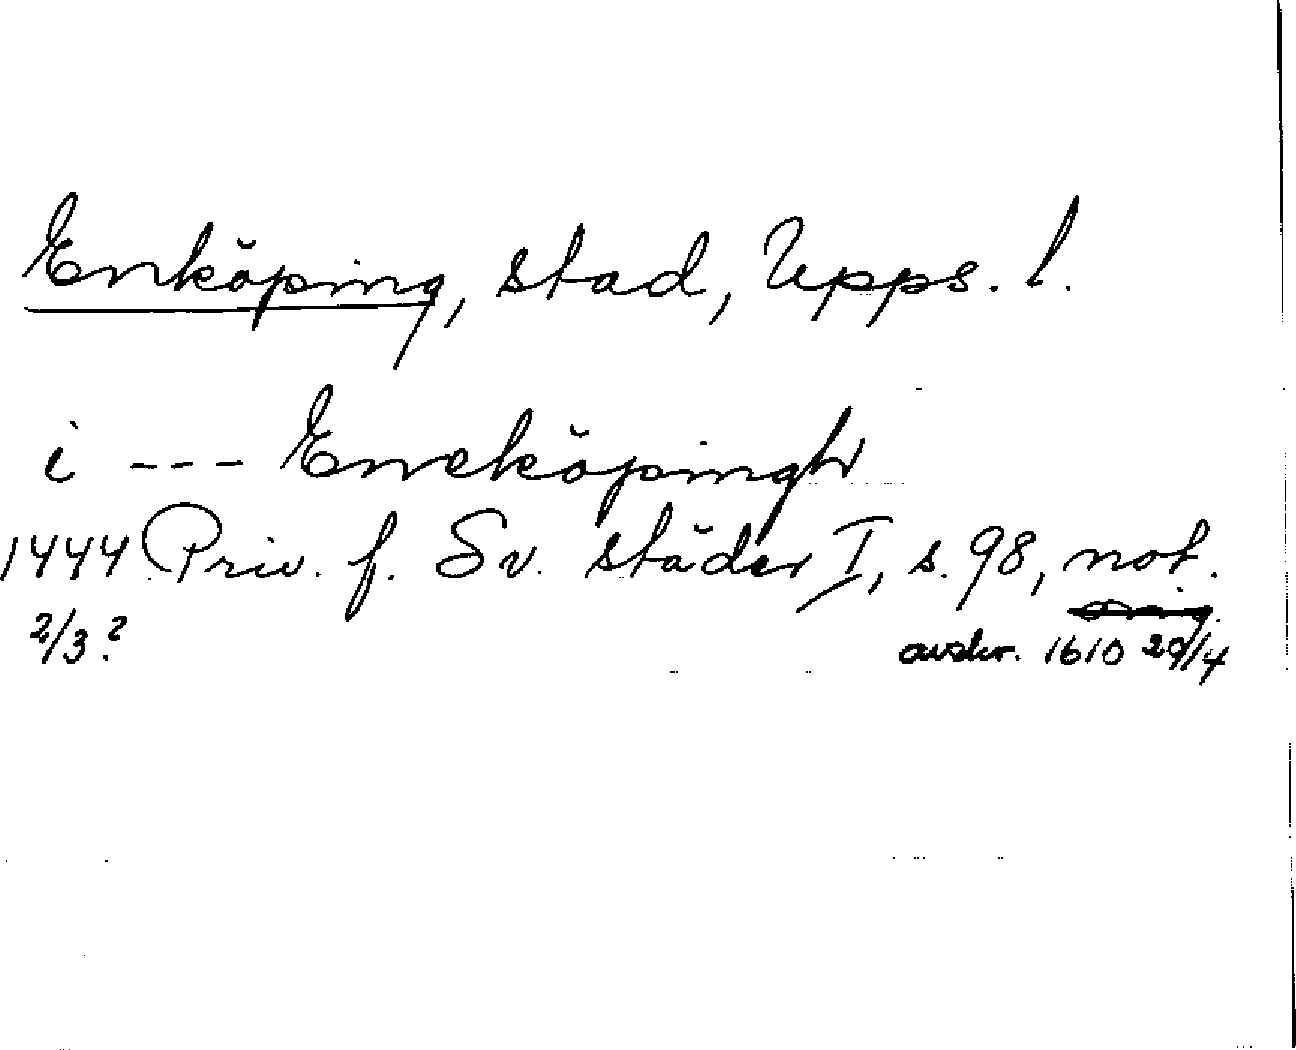 Enköping, stad, Upps. l.
i --- Eneköpingh
1444 Priv. f. Sv. städer I, s. 98, not.
2/3? avskr. 1610 29/4